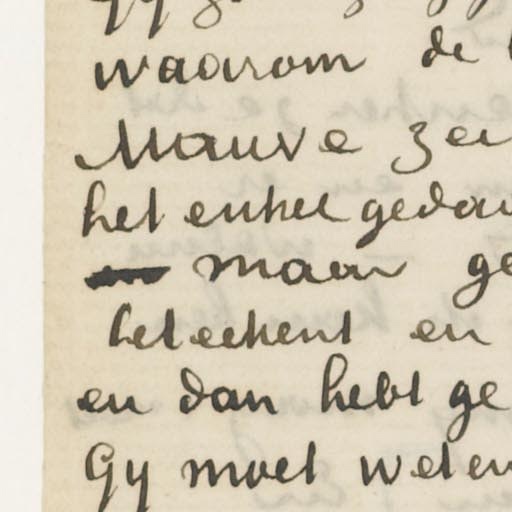 waarom de
Mauve zei
het enkel gedaa
maar ge
beteekent en
en dan hebt ge
Gy moet weten